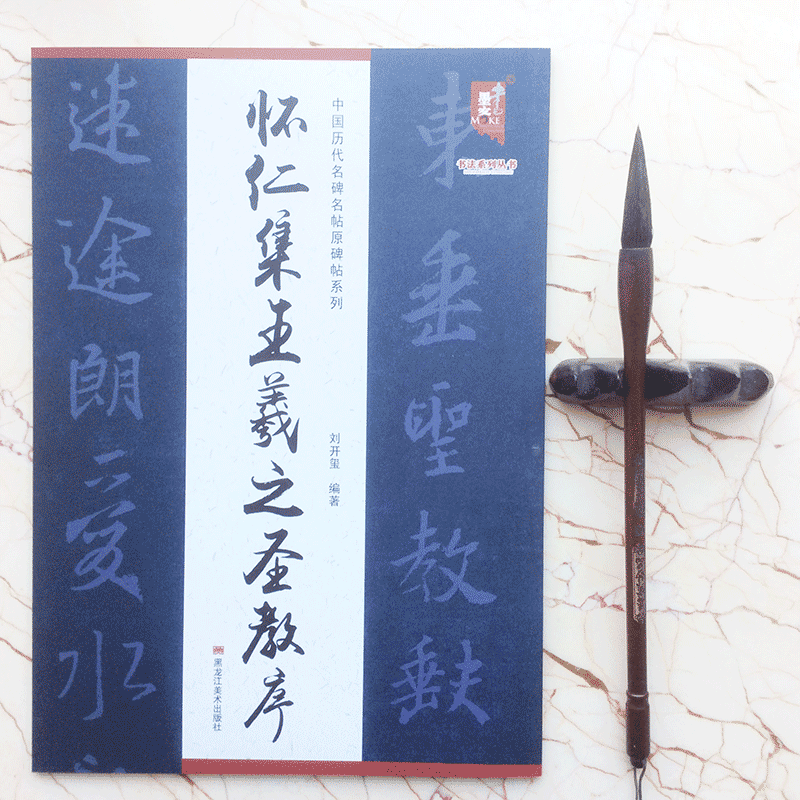 中国历代名碑名帖原碑帖系列
怀仁集王羲之圣教序
刘开玺 编著
黑龙江美术出版社
墨客
MOKE
书法系列丛书
東垂聖教
迷途朗愛水